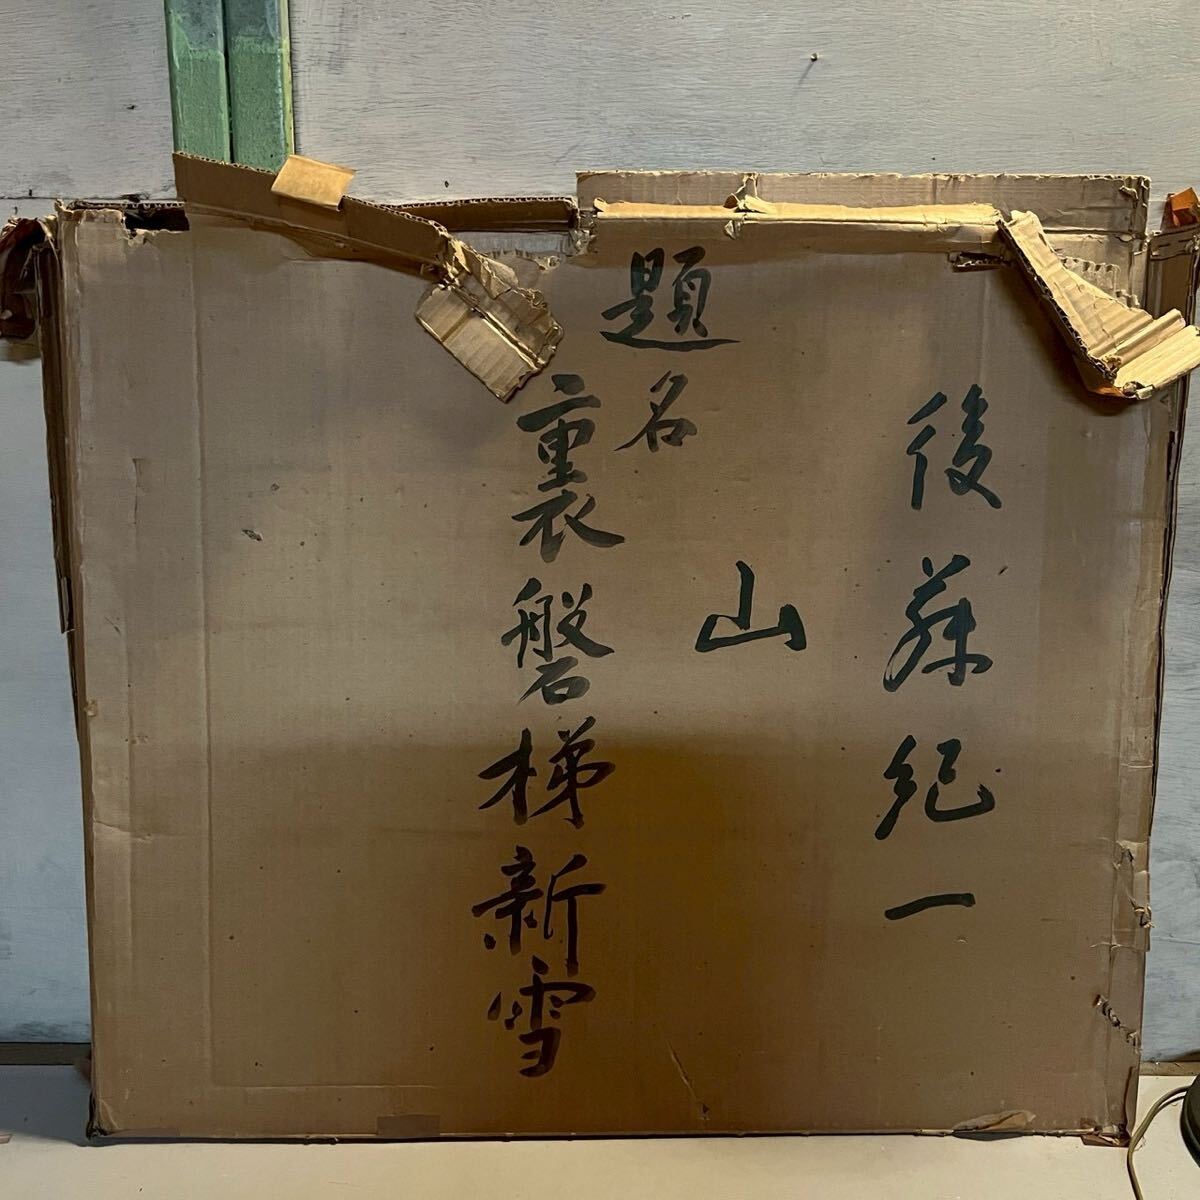 後藤紀一
山
題名
裏磐梯新雪